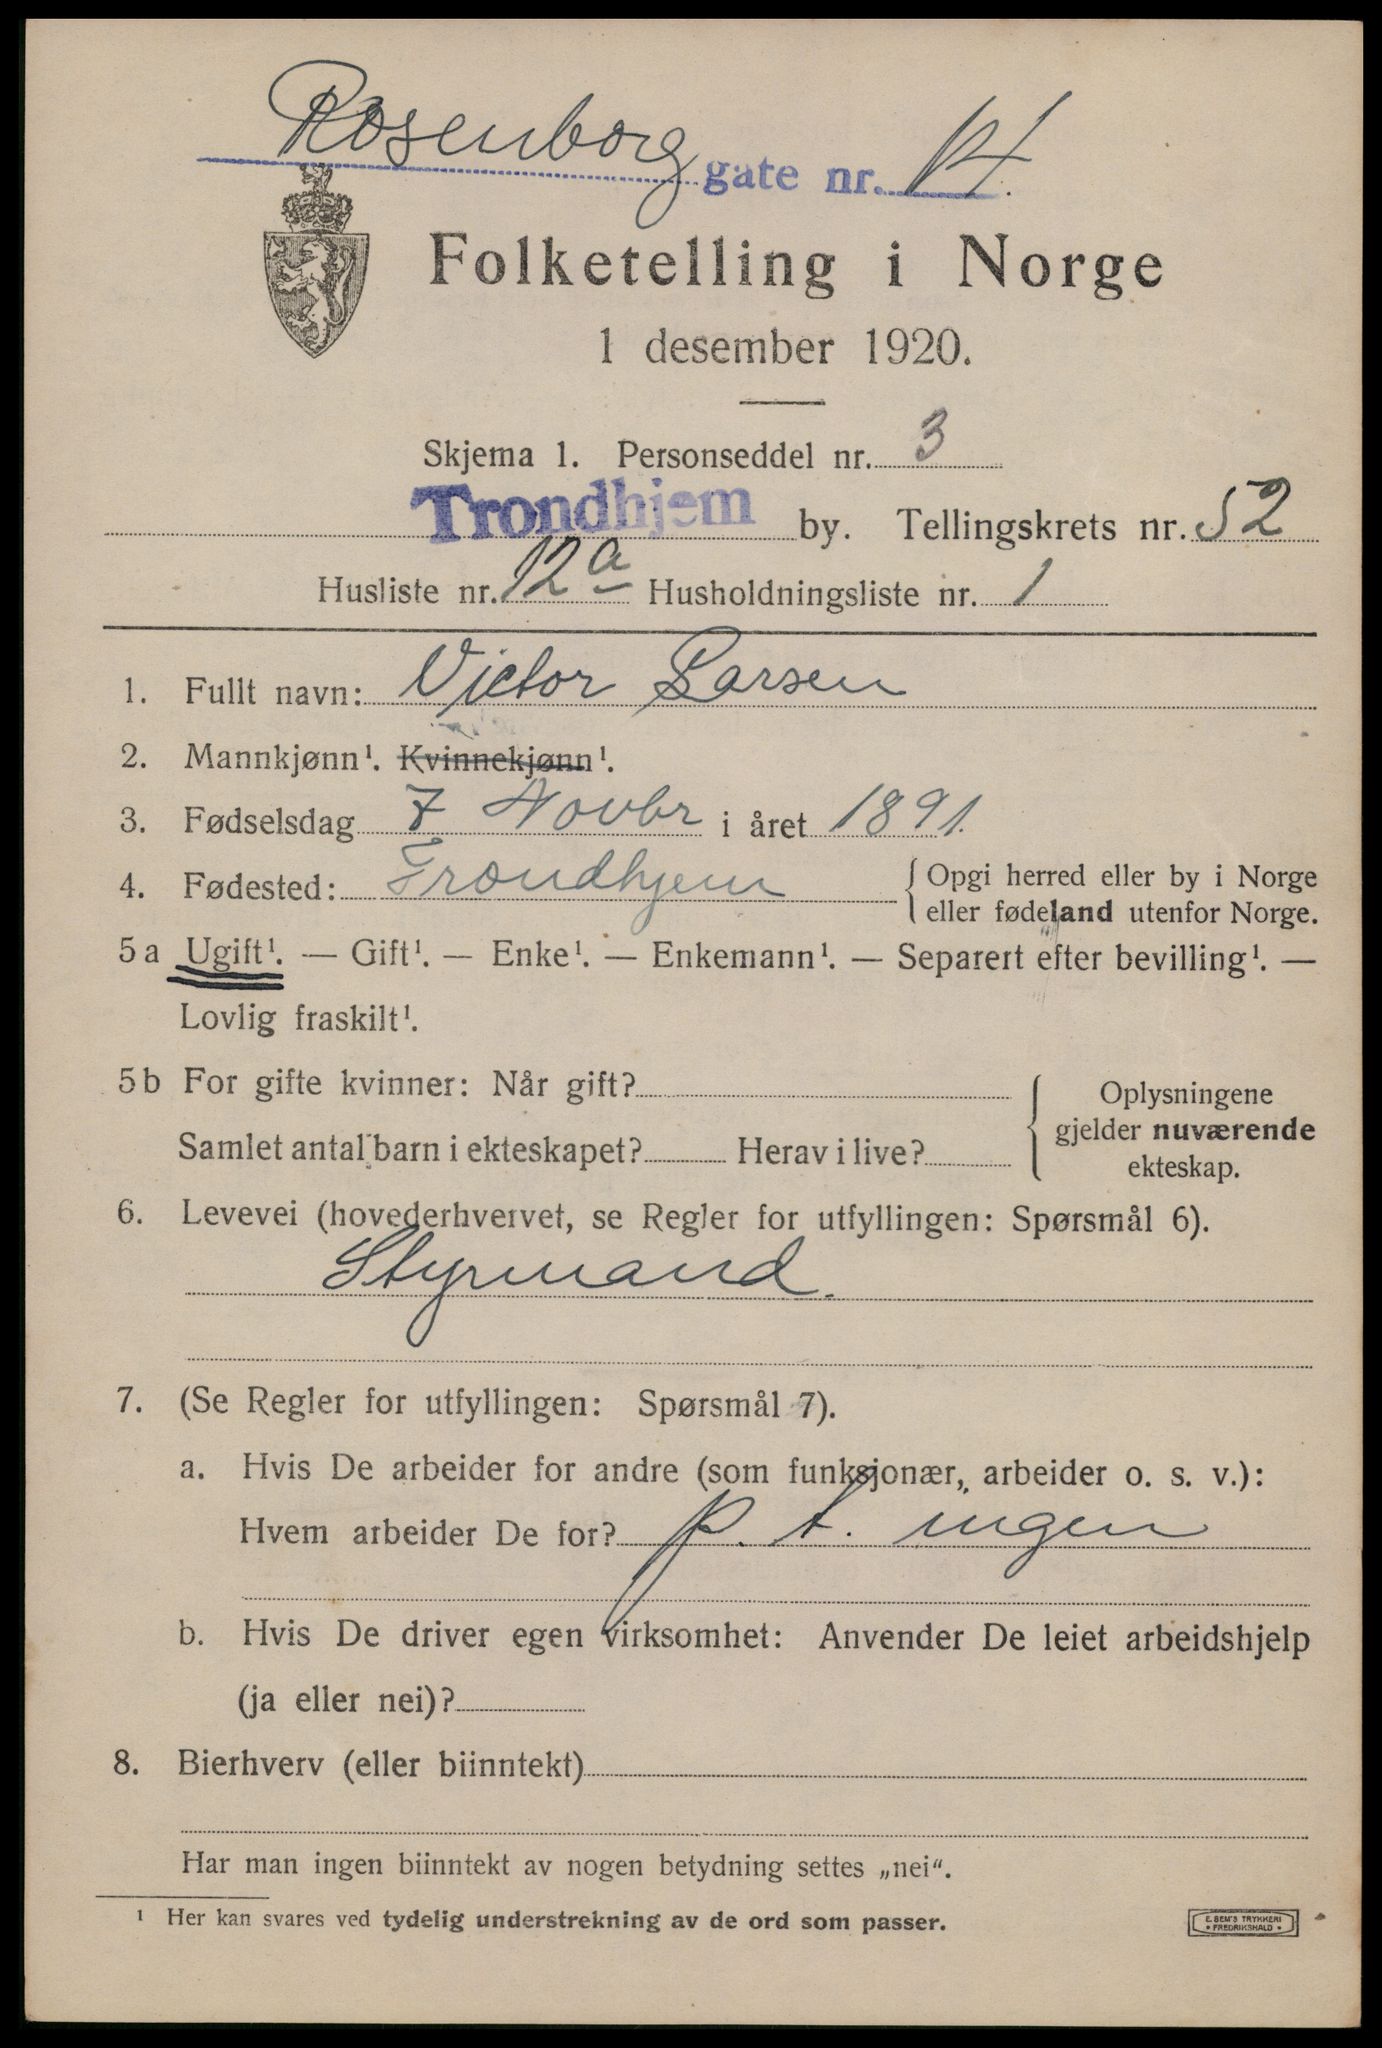 Rosenborg gate nr. 14.
Folketelling i Norge
1 desember 1920.
Skjema 1. Personseddel nr. 3
Trondhjem by. Tellingskrets nr. 52
Husliste nr. 12a Husholdningsliste nr. 1
1. Fullt navn: Victor Larsen
2. Mannkjønn¹. Kvinnekjønn¹.
3. Fødselsdag 7 Novbr i året 1891.
4. Fødested: Trondhjem { Opgi herred eller by i Norge
eller fødeland utenfor Norge.
5 a Ugift¹. — Gift¹. — Enke¹. — Enkemann¹. — Separert efter bevilling¹. —
Lovlig fraskilt¹.
5 b For gifte kvinner: Når gift?
Samlet antal barn i ekteskapet? Herav i live?
{ Oplysningene
gjelder nuværende
ekteskap.
6. Levevei (hovederhvervet, se Regler for utfyllingen: Spørsmål 6).
Styrmand.
7. (Se Regler for utfyllingen: Spørsmål 7).
a. Hvis De arbeider for andre (som funksjonær, arbeider o. s. v.):
Hvem arbeider De for? p. t. ingen
b. Hvis De driver egen virksomhet: Anvender De leiet arbeidshjelp
(ja eller nei)?
8. Bierhverv (eller biinntekt)
Har man ingen biinntekt av nogen betydning settes „nei“.
¹ Her kan svares ved tydelig understrekning av de ord som passer.
E. SEM'S TRYKKERI
• FREDRIKSHALD •